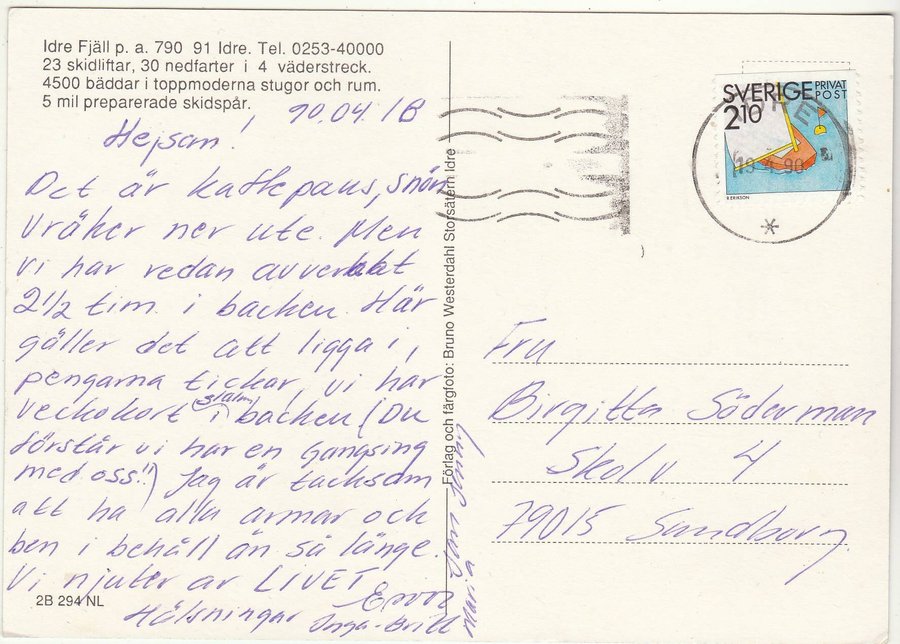 Idre Fjäll p. a. 790 91 Idre. Tel. 0253-40000
23 skidliftar, 30 nedfarter i 4 väderstreck.
4500 bäddar i toppmoderna stugor och rum.
5 mil preparerade skidspår.
90.04.18
Hejsan!
Det är kaffepaus, snön
vräker ner ute. Men
vi har redan avverkat
2 1/2 tim. i backen. Här
gäller det att ligga i,
pengarna tickar, vi har
veckokort i slalom backen (Du
förstår vi har en
med oss!!) Jag är tacksam
att ha alla armar och
ben i behåll än så länge.
Vi njuter av LIVET
Hälsningar
Inga-Britt
Maria
2B 294 NL
Förlag och färgfoto: Bruno Westerdahl Storsätern Idre
SVERIGE PRIVAT
POST
2 10
R.ERIKSON
19 4 90
Fru
Birgitta Söderman
Skolv 4
79015 Sundborn